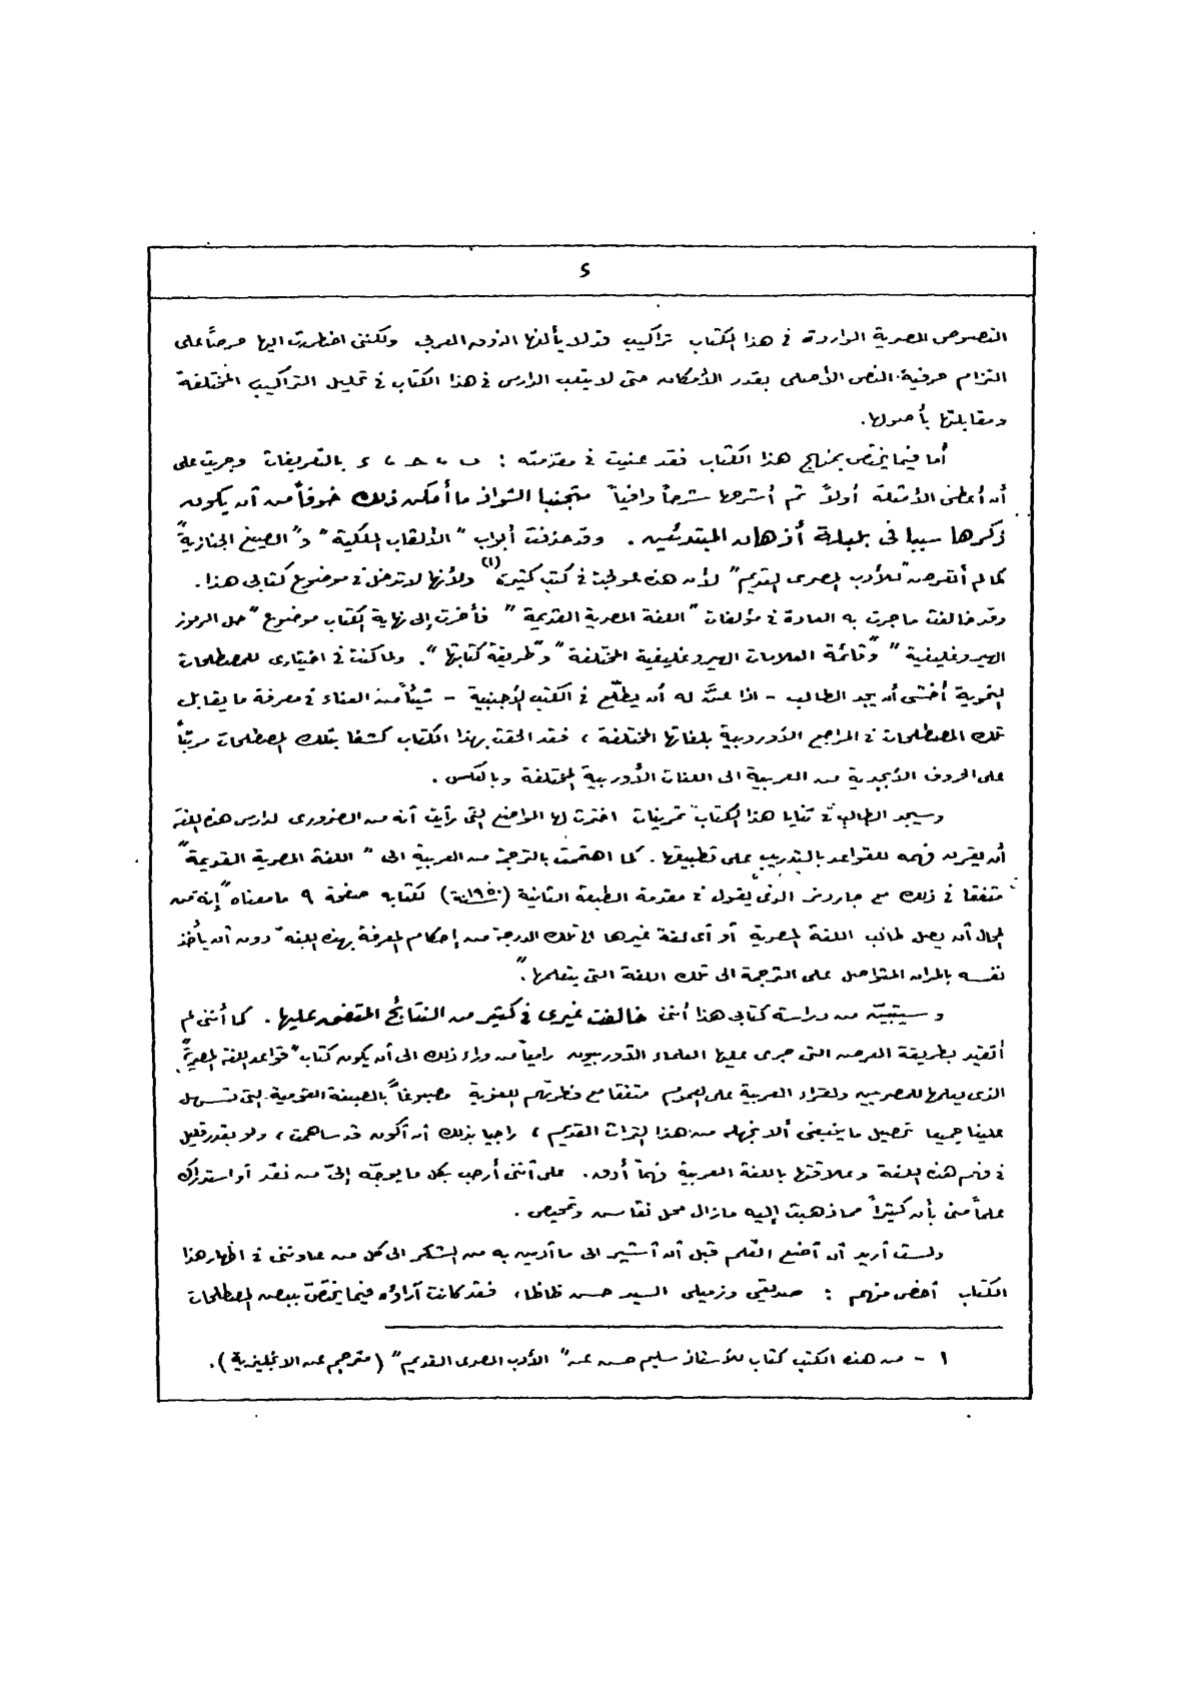 ء
النصوص المصرية الواردة فى هذا الكتاب تراكيب قد لا يألفها الذوق العربى ولكننى اضطررت اليها حرصاً على
التزام حرفية النص الأصلى بقدر الأمكان حتى لا يتعب الدارس فى هذا الكتاب فى تحليل التراكيب المختلفة
ومقابلتها بأصولها.
أما فيما يختص بمنهاج هذا الكتاب فقد عنيت فى مقدمته : ب ، ح ، ء بالتعريفات وجريت على
أن أعطى الأمثلة أولاً ثم أشرحها شرحاً وافياً متجنبا الشواذ ما أمكن ذلك خوفاً من أن يكون
ذكرها سببا فى بلبلة أذهان المبتدئين . وقد حذفت أبواب " الألقاب الملكية " و" الصيغ الجنازية "
كما لم أتعرض " للأدب المصرى القديم " لأن هذه عولجت فى كتب كثيرة (١) ولأنها لا تدخل فى موضوع كتابى هذا .
وقد خالفت ما جرت به العادة فى مؤلفات " اللغة المصرية القديمة " فأخرت إلى نهاية الكتاب موضوع " حل الرموز
الهيروغليفية " و" قائمة العلامات الهيروغليفية المختلفة " و" طريقة كتابتها ". ولما كنت فى اختيارى للمصطلحات
النحوية أخشى أن يجد الطالب - اذا عنَّ له أن يطلع فى الكتب الأجنبية - شيئاً من العناء فى معرفة ما يقابل
تلك المصطلحات فى المراجع الأوروبية بلغاتها المختلفة ، فقد الحقت بهذا الكتاب كشفا بتلك المصطلحات مرتباً
على الحروف الأبجدية من العربية الى اللغات الأوربية المختلفة وبالعكس .
وسيجد الطالب فى ثنايا هذا الكتاب تمرينات اخترت لها المواضع التى رأيت أنه من الضرورى لدارس هذه اللغة
أن يقرن فهمه للقواعد بالتدريب على تطبيقها . كما اهتممت بالترجمة من العربية الى " اللغة المصرية القديمة "
متفقا فى ذلك مع جاردنر الذى يقول فى مقدمة الطبعة الثانية (سنة ١٩٥٠) لكتابه صفحة ٩ ما معناه " إنه من
المحال أن يصل طالب اللغة المصرية أو أى لغة غيرها الى تلك الدرجة من إحكام المعرفة بهذه اللغة دون أن يأخذ
نفسه بالمران المتواصل على الترجمة الى تلك اللغة التى يتعلمها ".
وسيتبين من دراسة كتابى هذا أننى خالفت غيرى فى كثير من النتائج المتفق عليها . كما أننى لم
أتقيد بطريقة العرض التى جرى عليها العلماء الأوربيون رامياً من وراء ذلك الى أن يكون كتاب " قواعد اللغة المصرية "
الذى يعلمها للمصريين ولقراء العربية على العموم متفقا مع فطرتهم اللغوية مصبوغاً بالصبغة القومية التى تسهل
علينا جميعا تحصيل ما ينبغى ألا نجهله من هذا التراث القديم ، راجيا بذلك أن أكون قد ساهمت ، ولو بقدر قليل
فى فهم هذه اللغة وعلاقتها باللغة العربية فهماً أدق . على أننى أرحب بكل ما يوجّه إلىّ من نقد أو استدراك
علماً منى بأن كثيراً مما ذهبت إليه مازال محل نقاش وتمحيص .
ولست أريد أن أضع القلم قبل أن أشير الى ما أدين به من الشكر الى كل من عاوننى فى اظهار هذا
الكتاب أخص منهم : صديقى وزميلى السيد حسن ظاظا ، فقد كانت آراؤه فيما يختص ببعض المصطلحات
١ - من هذه الكتب كتاب للأستاذ سليم حسن عن " الأدب المصرى القديم " ( مترجم عن الانجليزية ) .